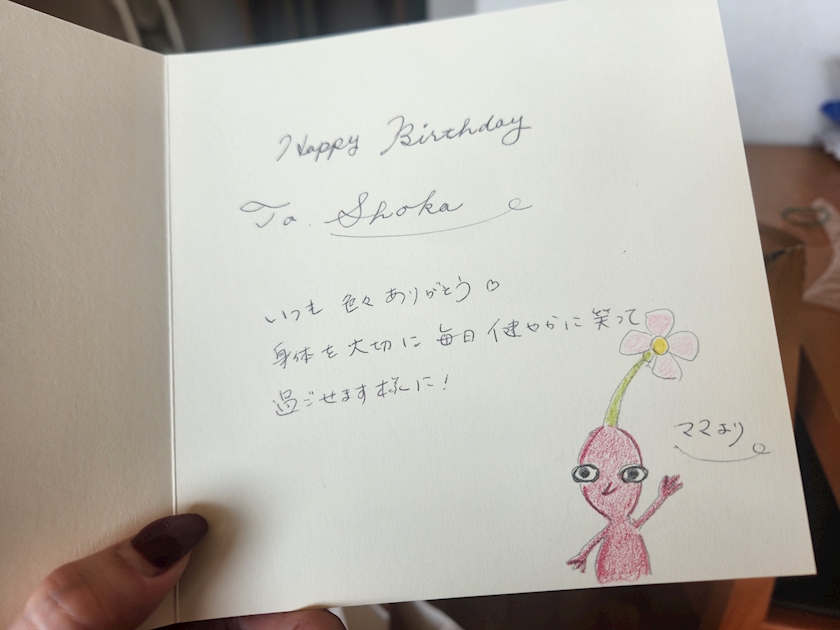 Happy Birthday
To. Shoka
いつも 色々ありがとう♡
身体を大切に毎日健やかに笑って
過ごせます様に!
ママより